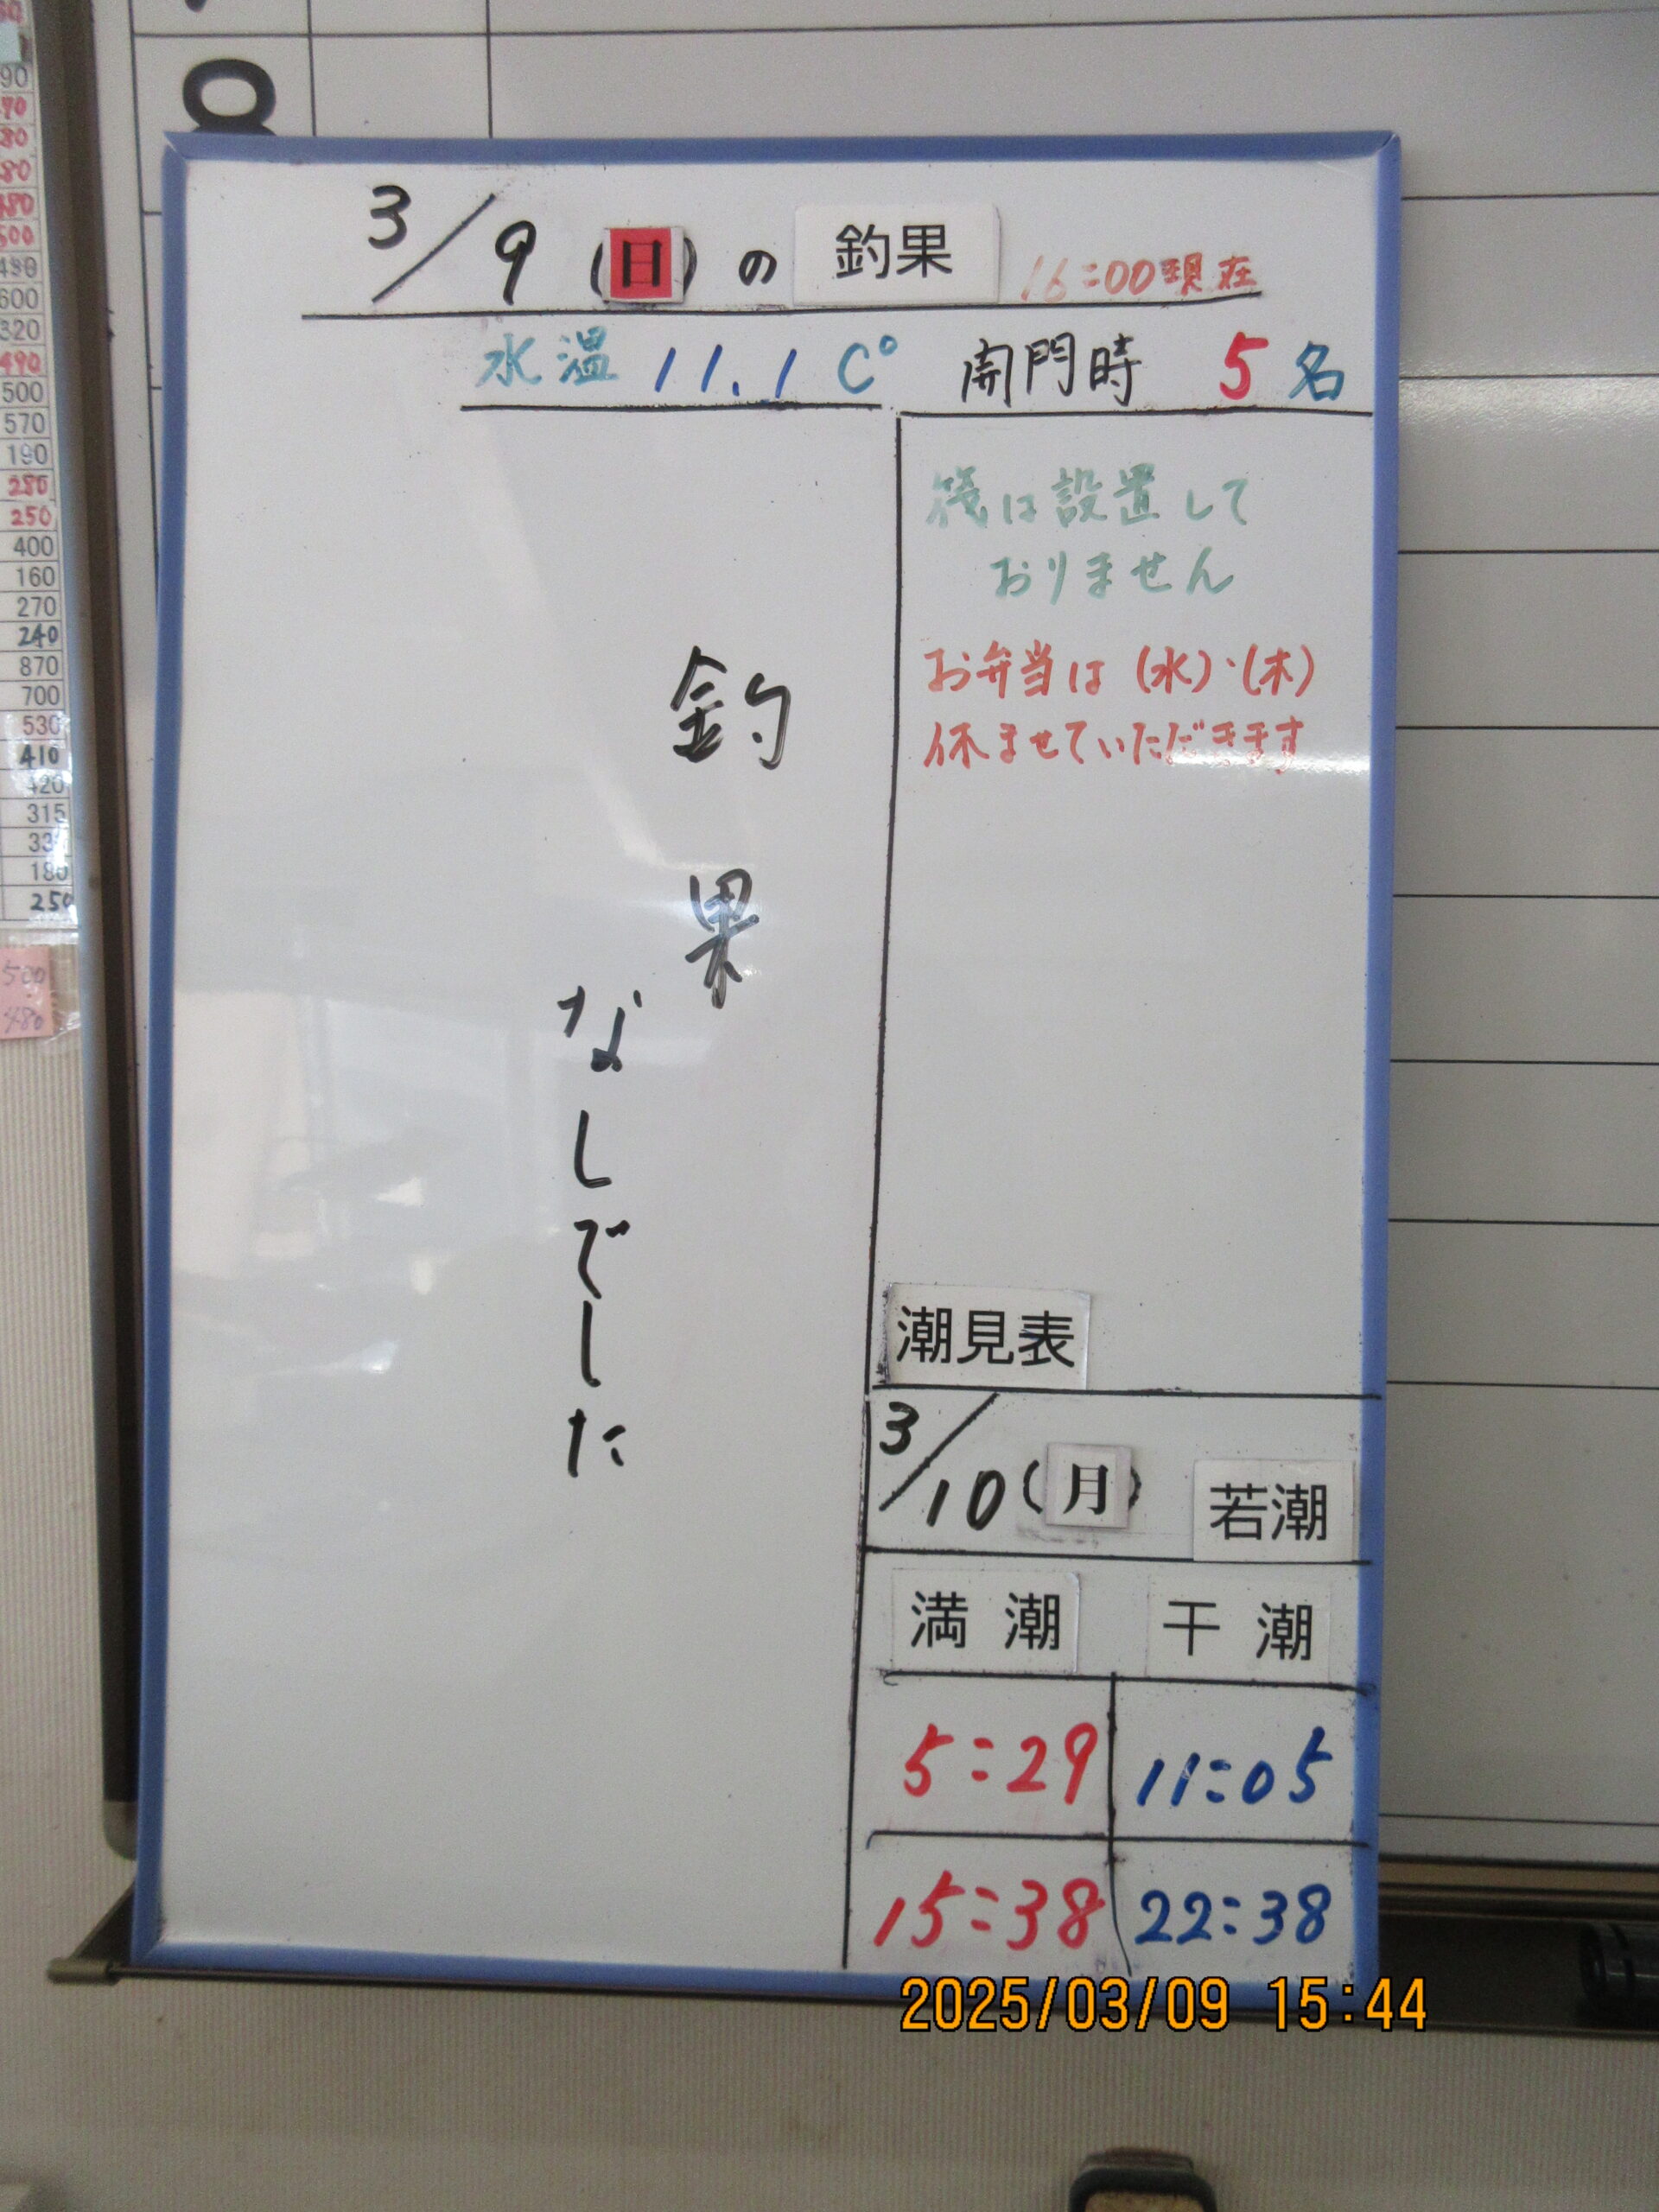 3/9 (日) の 釣果 16:00現在
水温 11.1 C° 開門時 5名
筏は設置して
おりません
お弁当は (水)・(木)
休ませていただきます
釣果
なしでした
潮見表
3/10 (月) 若潮
満潮 干潮
5:29 11:05
15:38 22:38
2025/03/09 15:44
90
70
80
80
480
500
480
600
320
490
500
570
190
280
250
400
160
270
240
870
700
530
410
420
315
180
250
500
480